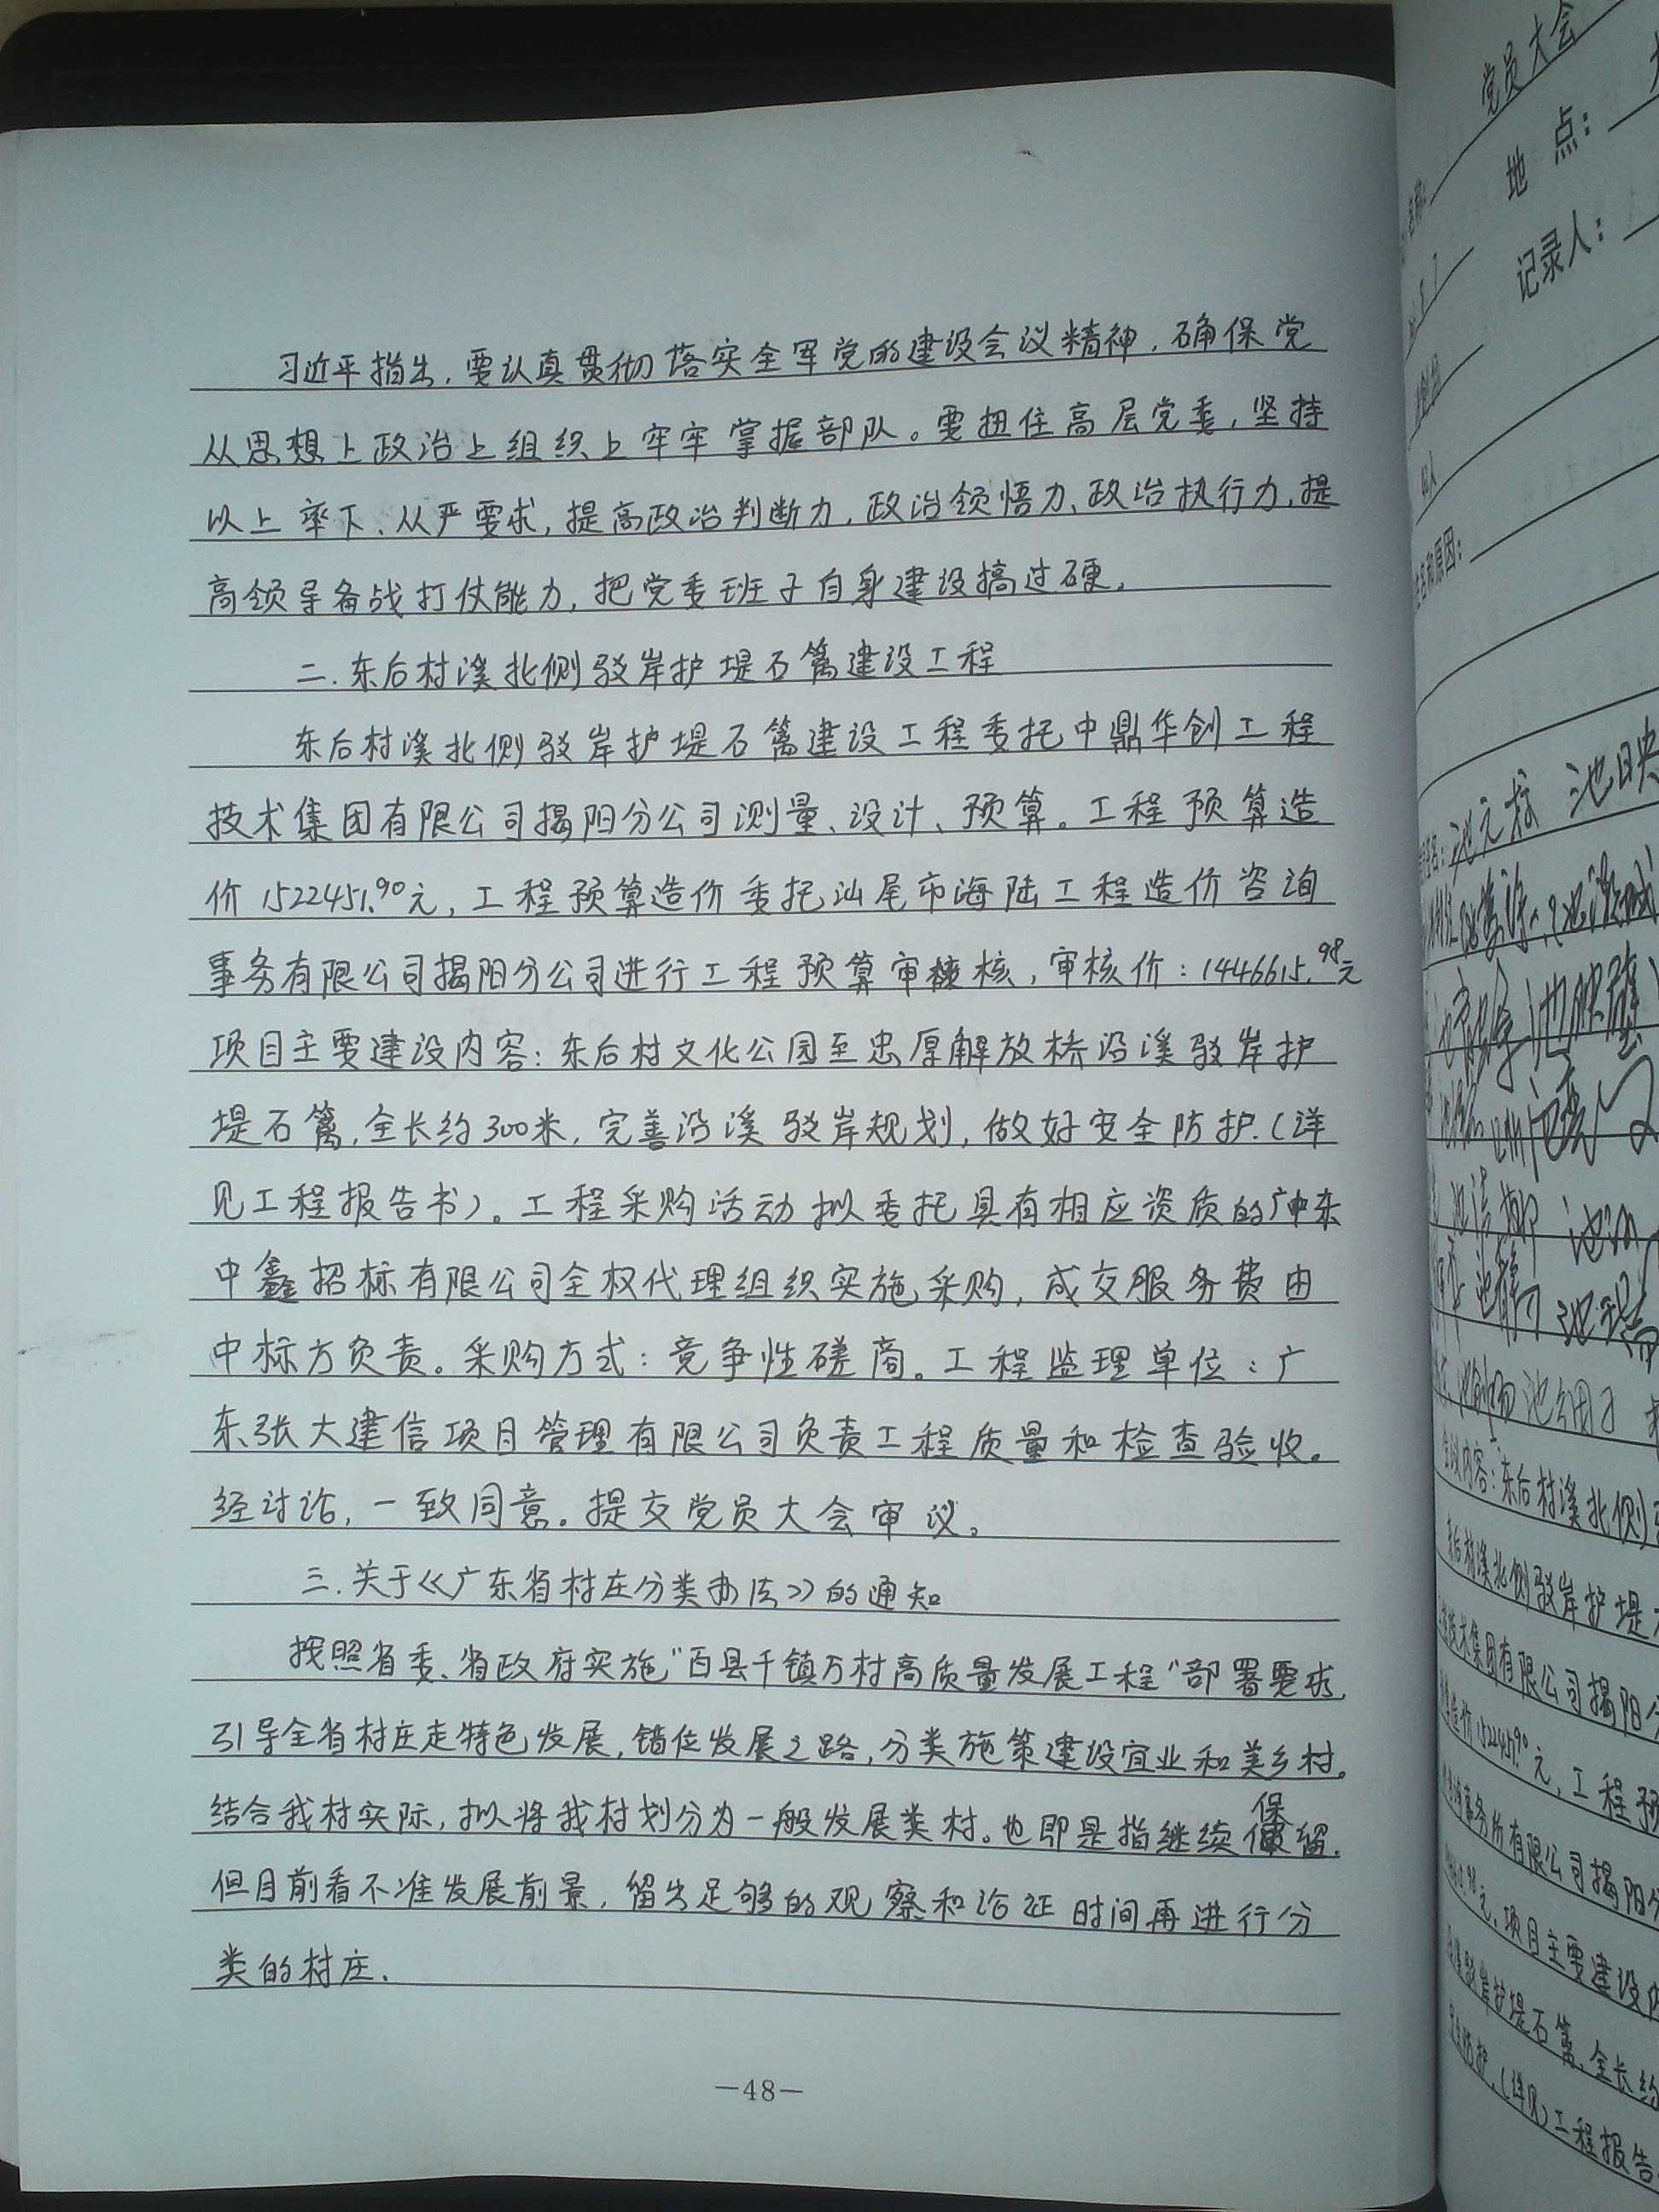 习近平指出,要认真贯彻落实全军党的建设会议精神,确保党
从思想上政治上组织上牢牢掌握部队。要扭住高层党委,坚持
以上率下、从严要求,提高政治判断力,政治领悟力、政治执行力,提
高领导备战打仗能力,把党委班子自身建设搞过硬。
二.东后村溪北侧驳岸护堤石篱建设工程
东后村溪北侧驳岸护堤石篱建设工程委托中鼎华创工程
技术集团有限公司揭阳分公司测量、设计、预算。工程预算造
价1522451.90元,工程预算造价委托汕尾市海陆工程造价咨询
事务有限公司揭阳分公司进行工程预算审核,审核价:1446615.98元
项目主要建设内容:东后村文化公园至忠厚解放桥沿溪驳岸护
堤石篱,全长约300米,完善沿溪驳岸规划,做好安全防护.(详
见工程报告书)。工程采购活动拟委托具有相应资质的广东
中鑫招标有限公司全权代理组织实施采购,成交服务费由
中标方负责。采购方式:竞争性磋商。工程监理单位:广
东张大建信项目管理有限公司负责工程质量和检查验收。
经讨论,一致同意。提交党员大会审议。
三.关于《广东省村庄分类办法》的通知
按照省委、省政府实施"百县千镇万村高质量发展工程"部署要求,
引导全省村庄走特色发展,错位发展之路,分类施策建设宜业和美乡村。
结合我村实际,拟将我村划分为一般发展类村。也即是指继续保留.
但目前看不准发展前景,留出足够的观察和论证时间再进行分
类的村庄.
—48—
党员大会
地 点:
记录人:
和原因:
池元
池映
池
会议内容:东后村溪北侧
东后村溪北侧驳岸护堤
技术集团有限公司揭阳分
造价1522451.90元,工程预
事务所有限公司揭阳分
.98元.项目主要建设内
驳岸护堤石篱,全长约
防护.(详见)工程报告